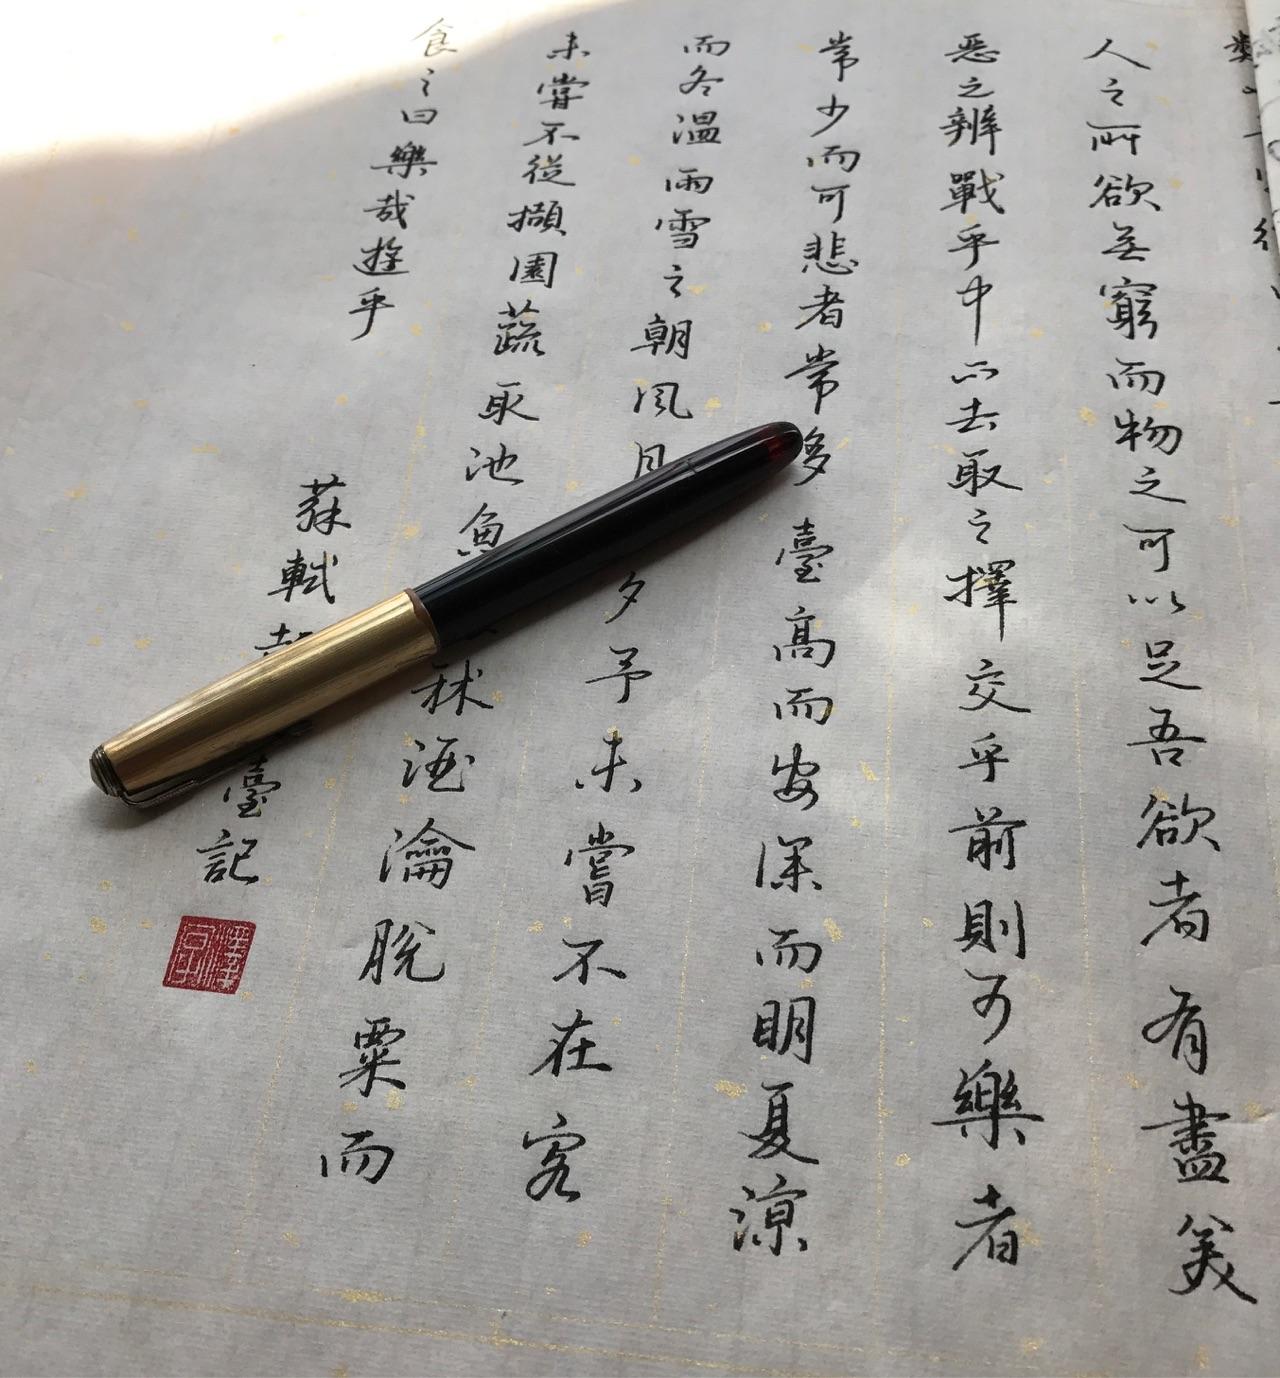 人之所欲無窮而物之可以足吾欲者有盡美
惡之辨戰乎中而去取之擇交乎前則可樂者
常少而可悲者常多臺高而安深而明夏涼
而冬溫雨雪之朝風月夕予未嘗不在客
未嘗不從擷園蔬取池魚秫酒瀹脫粟而
食之曰樂哉遊乎
蘇軾臺記